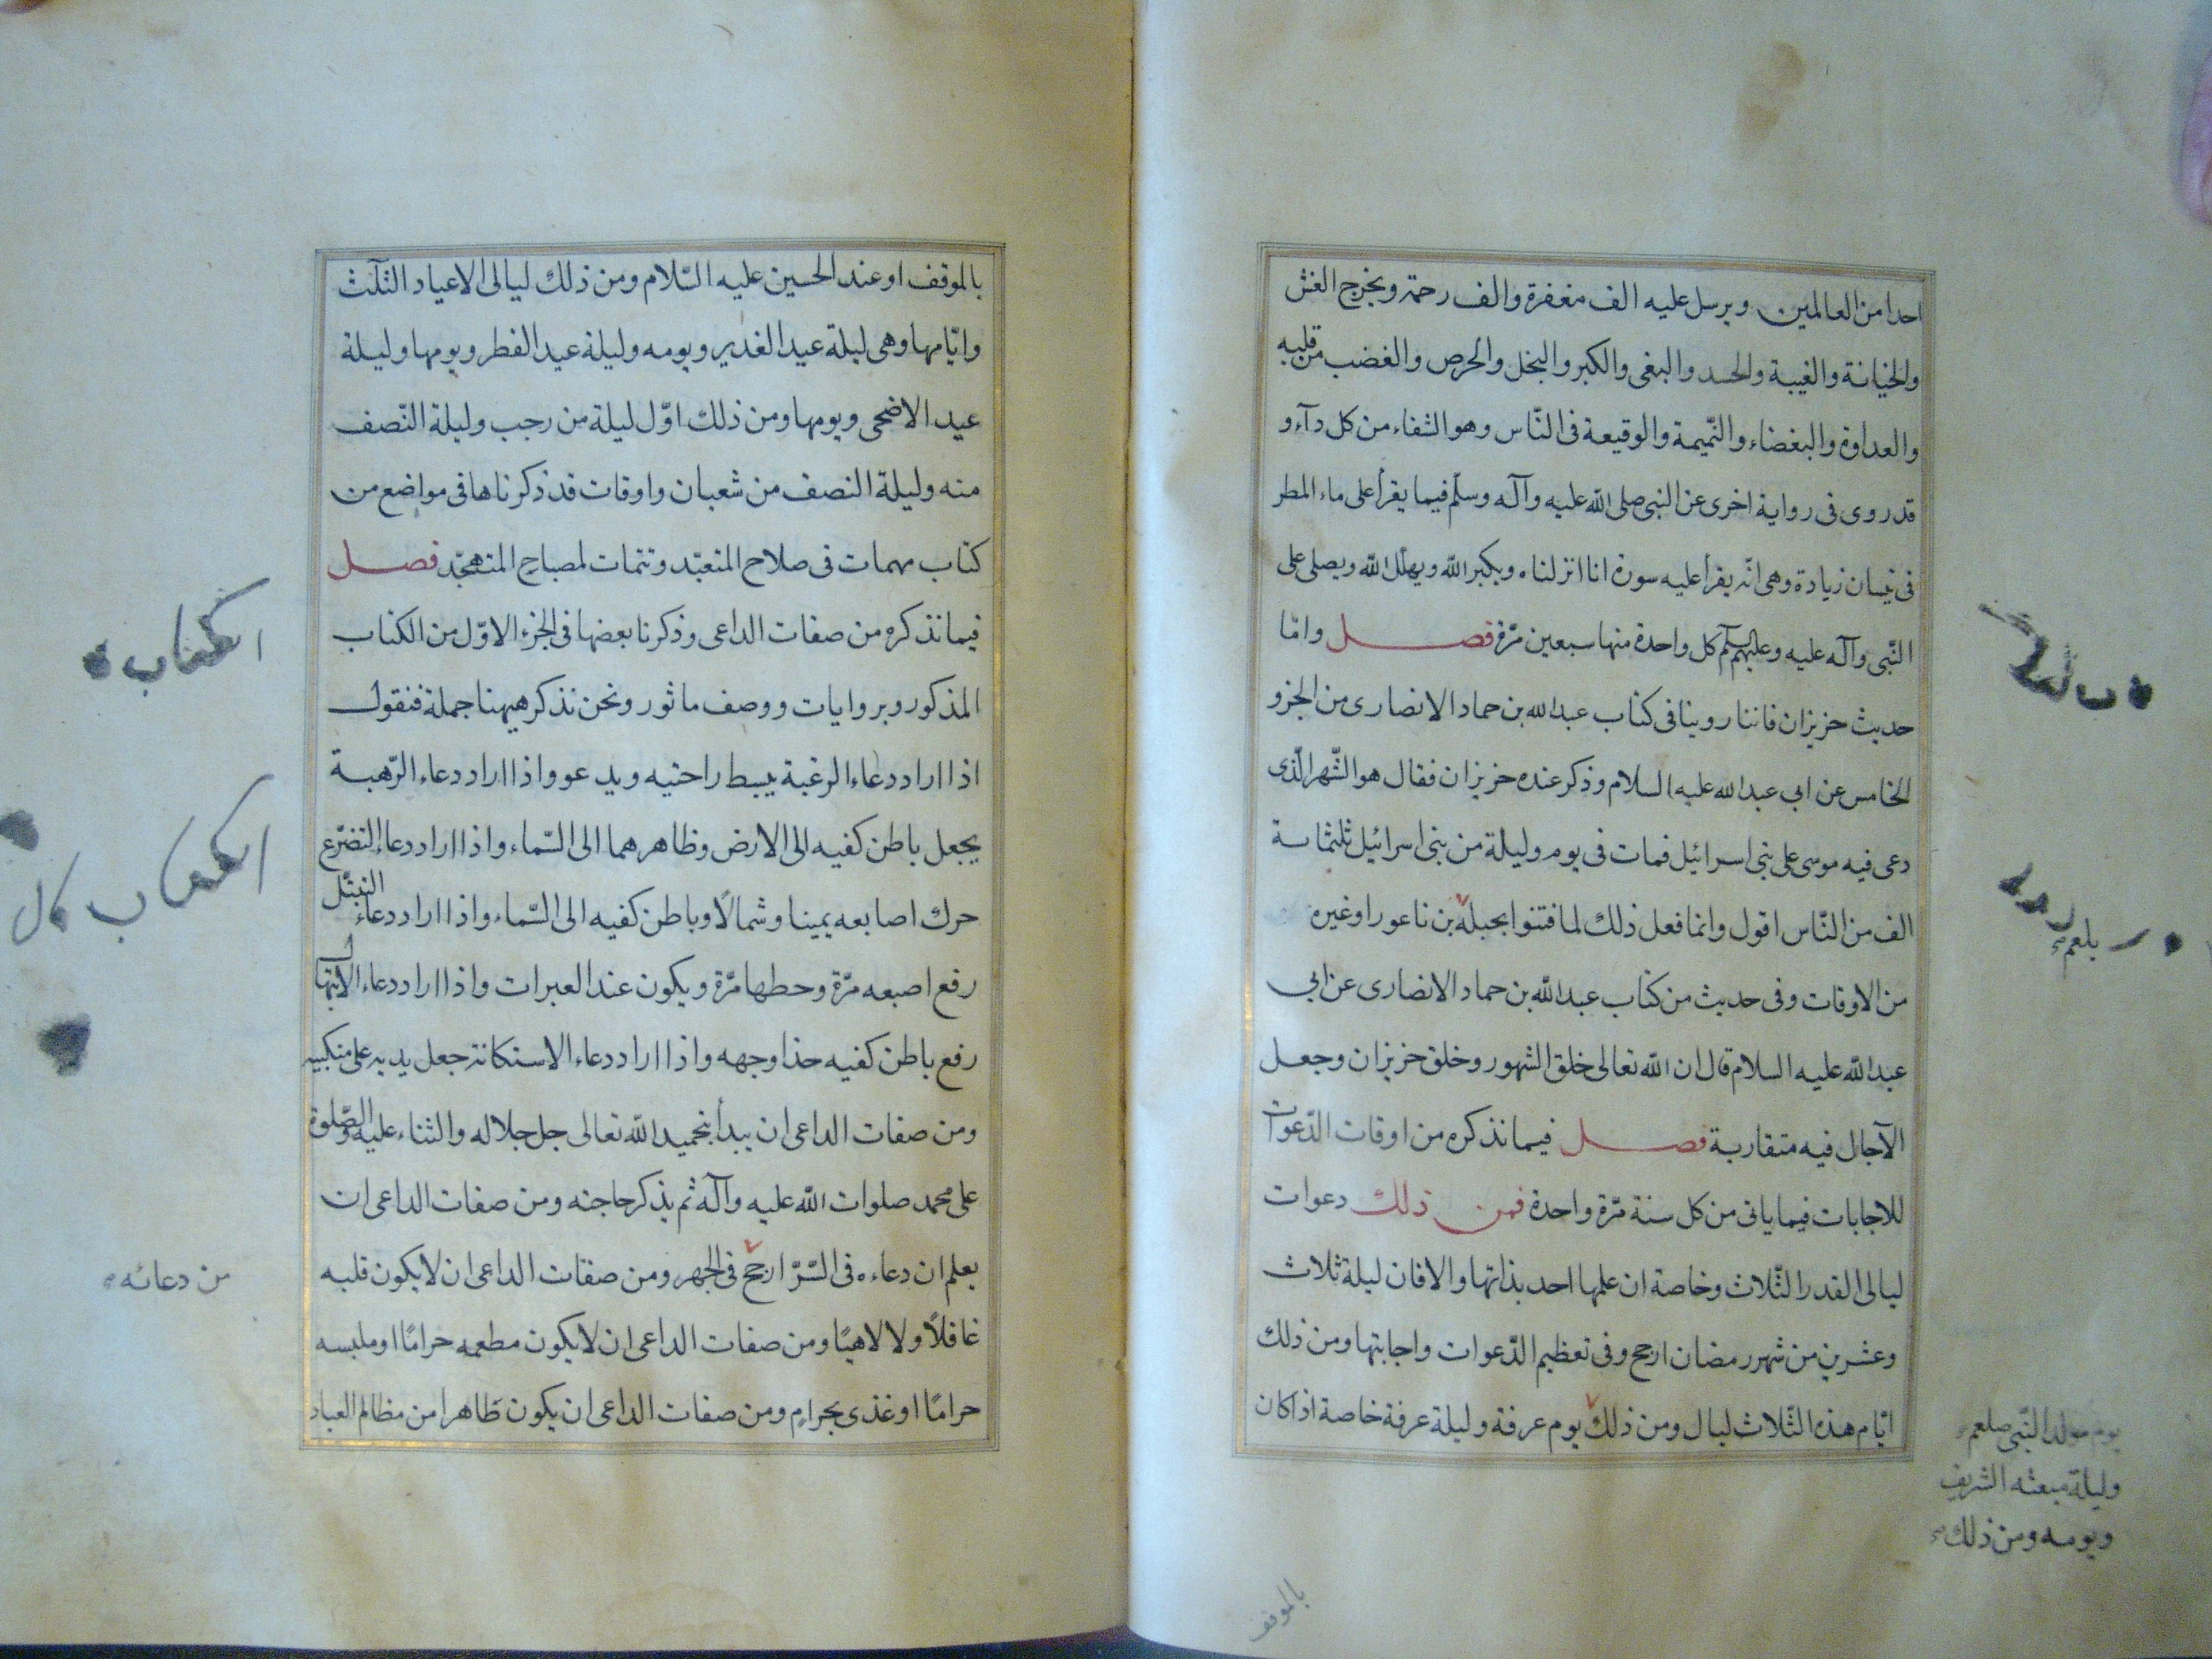 احدا من العالمين ويرسل عليه الف مغفرة والف رحمة ويخرج الغش
والخيانة والغيبة والحسد والبغى والكبر والبخل والحرص والغضب من قلبه
والعداوة والبغضاء والنّميمة والوقيعة فى النّاس وهو الشفاء من كل دآء و
قد روى فى رواية اخرى عن النبى صلى الله عليه وآله وسلّم فيما يقرأ على ماء المطر
فى نيسان زيادة وهى انّه يقرأ عليه سورة انا انزلناه ويكبر الله ويهلّل الله ويصلى على
النّبى وآله عليه وعليهم كل واحدة منها سبعين مرّة فصل وامّا
حديث حزيران فاننا روينا فى كتاب عبد الله بن حماد الانصارى من الجزو
الخامس عن ابى عبد الله عليه السلام وذكر عنده حزيزان فقال هو الشّهر الّذى
دعى فيه موسى على بنى اسرائيل فمات فى يوم وليلة من بنى اسرائيل ثلثمائة
الف من النّاس اقول وانما فعل ذلك لما فتنوا بحيلة بن ناعور اوغيره
بلعم
من الاوقات وفى حديث من كتاب عبد الله بن حماد الانصارى عن ابى
عبد الله عليه السلام قال ان الله تعالى خلق الشهور وخلق حزيزان وجعل
الآجال فيه متقاربة فصل فيما نذكره من اوقات الدّعوات
للاجابات فيما ياتى من كل سنة مرّة واحدة فمن ذلك دعوات
ليالى القدر الثّلاث وخاصة ان علمها احد بذاتها والا فان ليلة ثلاث
وعشرين من شهر رمضان ارجح وفى تعظيم الدّعوات واجابتها ومن ذلك
ايّام هذه الثّلاث ليال ومن ذلك يوم عرفة وليلة عرفة خاصة اذا كان
يوم مولد النّبى صلعم
وليلة مبعثه الشريف
ويومه ومن ذلك
بالموقف
بالموقف او عند الحسين عليه السّلام ومن ذلك ليالى الاعياد الثلث
وايّامها وهى ليلة عيد الغدير ويومه وليلة عيد الفطر ويومها وليلة
عيد الاضحى ويومها ومن ذلك اوّل ليلة من رجب وليلة النّصف
منه وليلة النصف من شعبان واوقات قد ذكرناها فى مواضع من
كتاب مهمات فى صلاح المتعبّد وتتمات لمصباح المتهجّد فصل
فيما نذكره من صفات الداعى وذكرنا بعضها فى الجزء الاوّل من الكتاب
المذكور وبروايات ووصف ماثور ونحن نذكر هيهنا جملة فنقول
اذا اراد دعاء الرغبة يبسط راحتيه ويدعو واذا اراد دعاء الرّهبة
يجعل باطن كفيه الى الارض وظاهرهما الى السّماء واذا اراد دعاء التضرّع
حرك اصابعه يمينا وشمالًا وباطن كفيه الى السّماء واذا اراد دعاء التبتّل
رفع اصبعه مرّة وحطها مرّة ويكون عند العبرات واذا اراد دعاء الابتهال
رفع باطن كفيه حذا وجهه واذا اراد دعاء الاستكانة جعل يديه على منكبيه
ومن صفات الداعى ان يبدأ بتحميد الله تعالى جل جلاله والثناء عليه والصّلوة
على محمد صلوات الله عليه وآله ثم يذكر حاجته ومن صفات الداعى ان
يعلم ان دعاءه فى السّرّ ارجح فى الجهر ومن صفات الداعى ان لا يكون قلبه
من دعائه
غافلًا ولا لاهيًا ومن صفات الداعى ان لا يكون مطعمه حرامًا او ملبسه
حرامًا او غذى بحرامٍ ومن صفات الداعى ان يكون ظاهرا من مظالم العباد